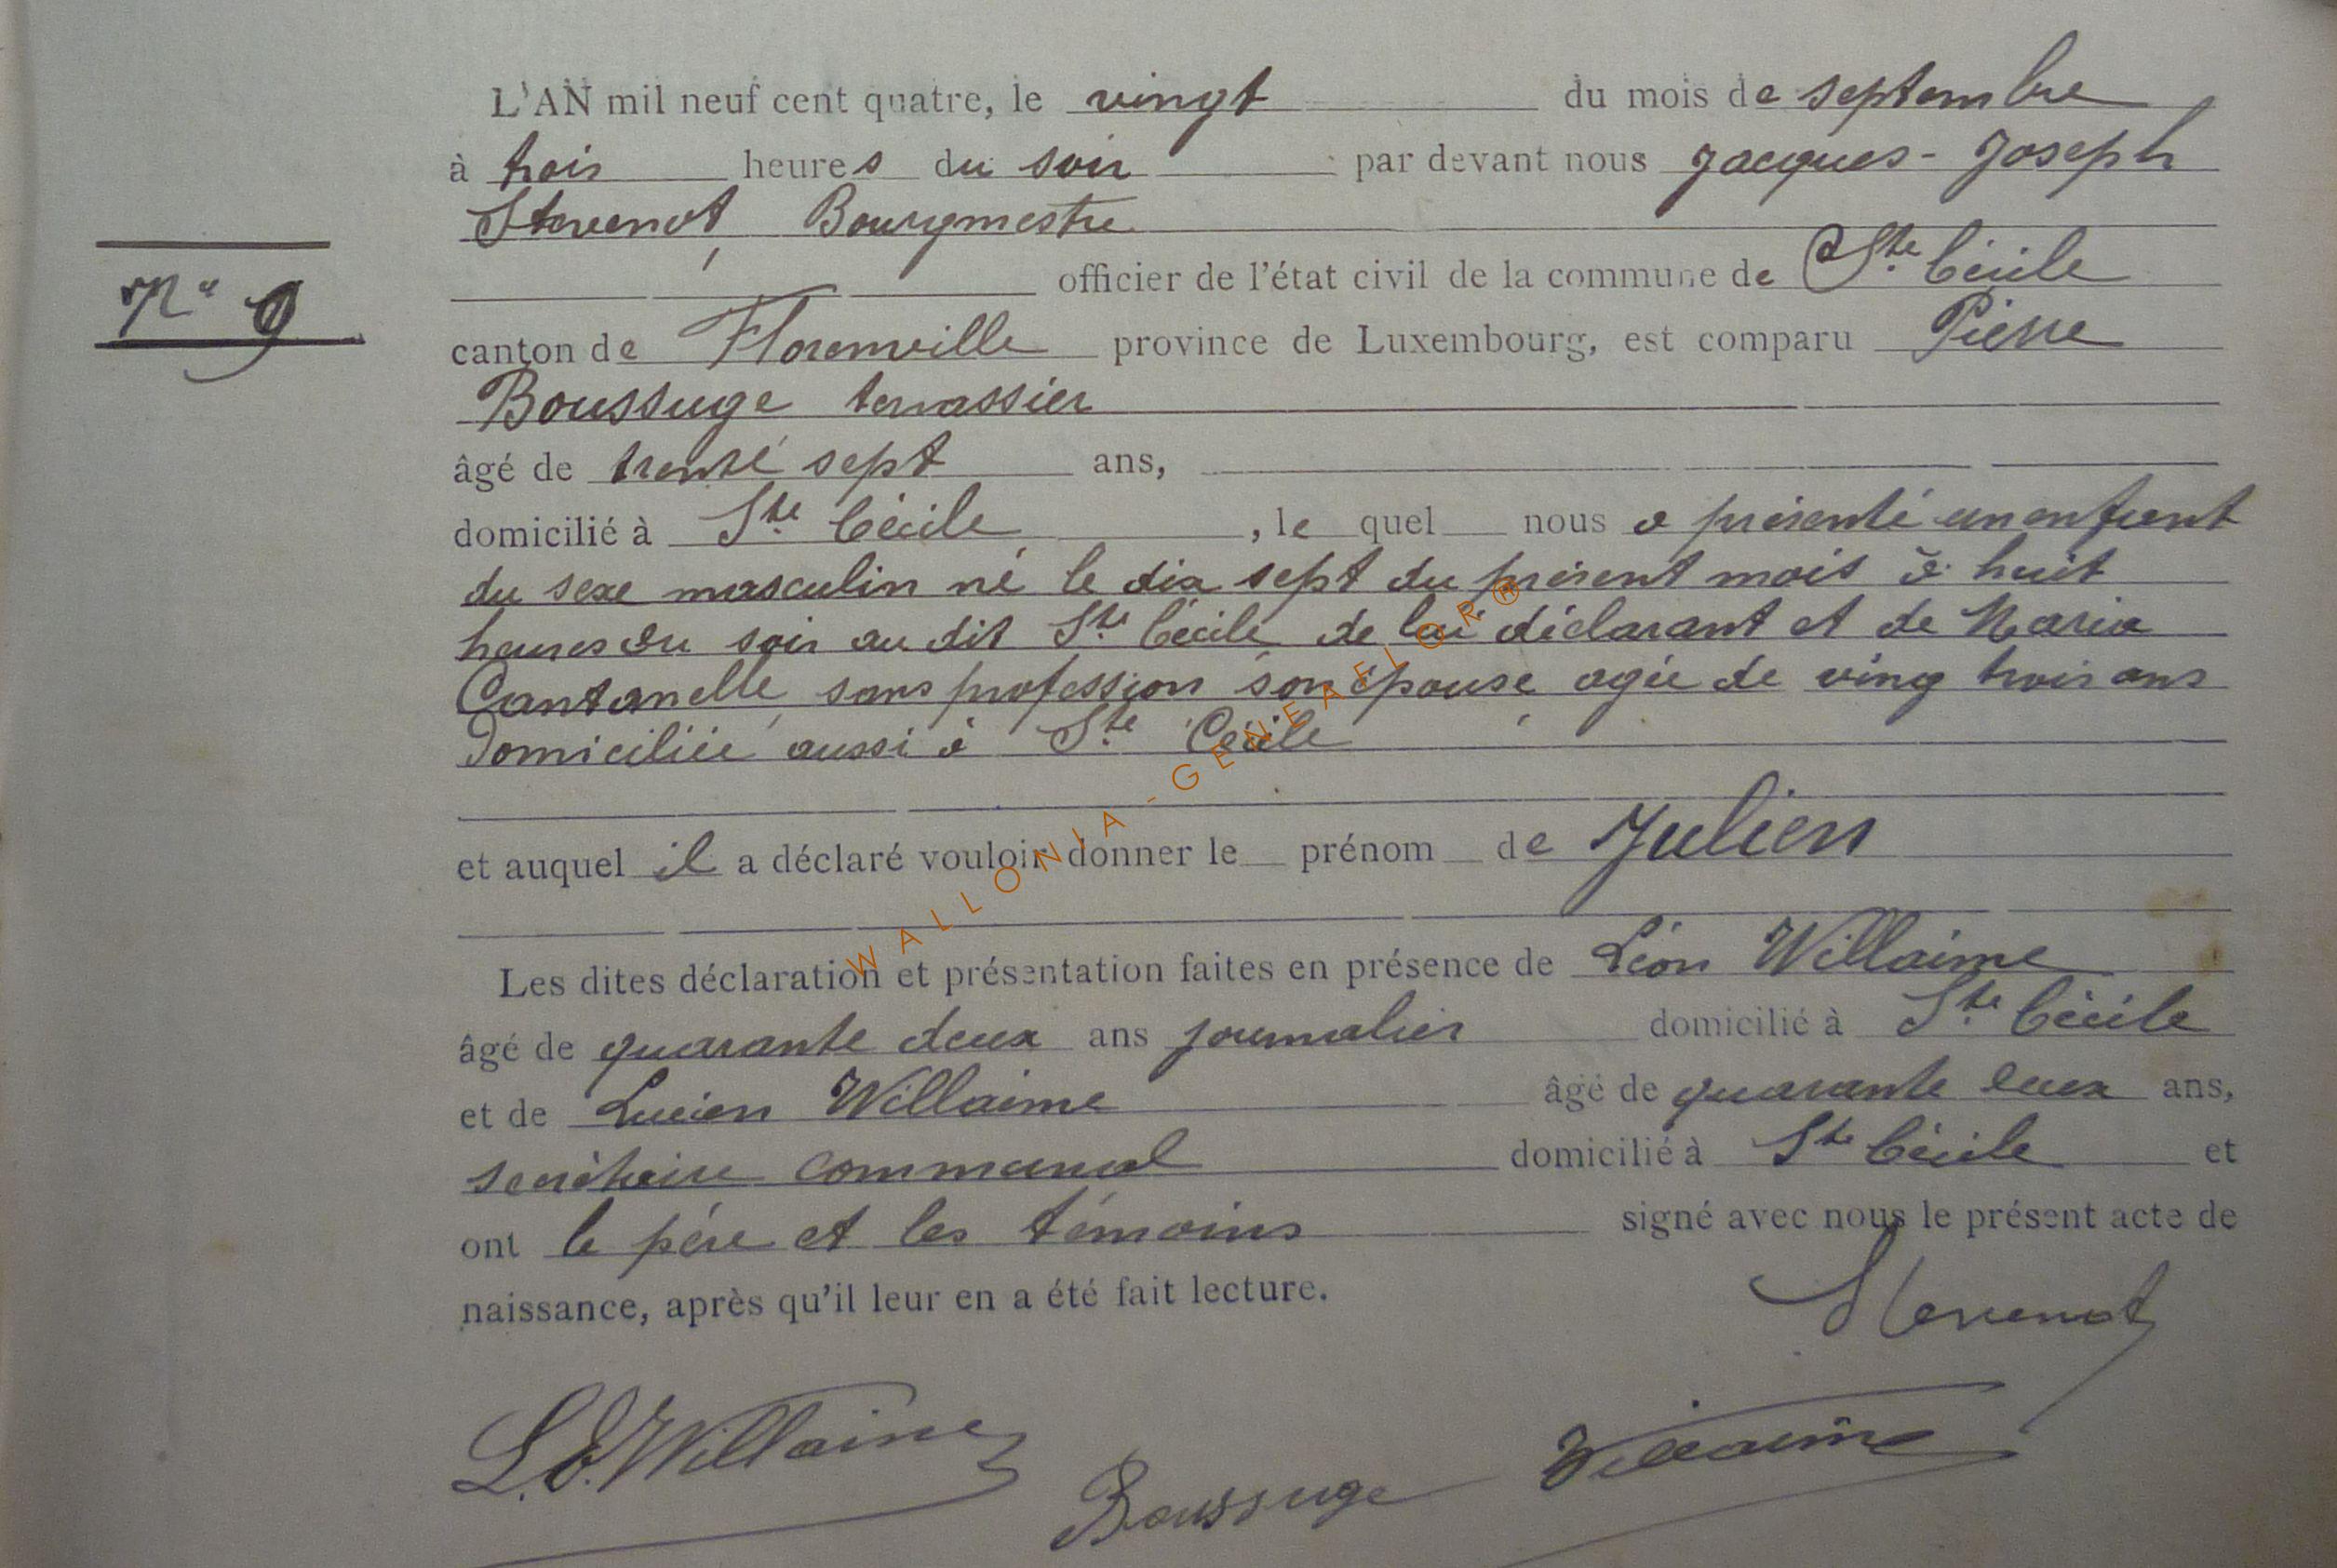 L'AN mil neuf cent quatre, le vingt du mois de septembre
à trois heures du soir par devant nous Jacques-Joseph
Stevenot, Bourgmestre
officier de l'état civil de la commune de Ste Cécile
N° 9
canton de Florenville province de Luxembourg, est comparu Pierre
Boussuge terrassier
âgé de trente sept ans,
domicilié à Ste Cécile, le quel nous a présenté un enfant
du sexe masculin né le dix sept du présent mois à huit
heures du soir au dit Ste Cécile de lui déclarant et de Maria
Cantanelle, sans profession son épouse, agée de ving trois ans
Domiciliée aussi à Ste Cécile
et auquel il a déclaré vouloir donner le prénom de Julien
Les dites déclaration et présentation faites en présence de Léon Willaime
âgé de quarante deux ans journalier domicilié à Ste Cécile
et de Lucien Willaime âgé de quarante deux ans,
secrétaire communal domicilié à Ste Cécile et
ont le père et les témoins signé avec nous le présent acte de
naissance, après qu'il leur en a été fait lecture.
Stevenot
L. Willaime Boussuge Willaime
WALLONIA-GENEAFLOR®